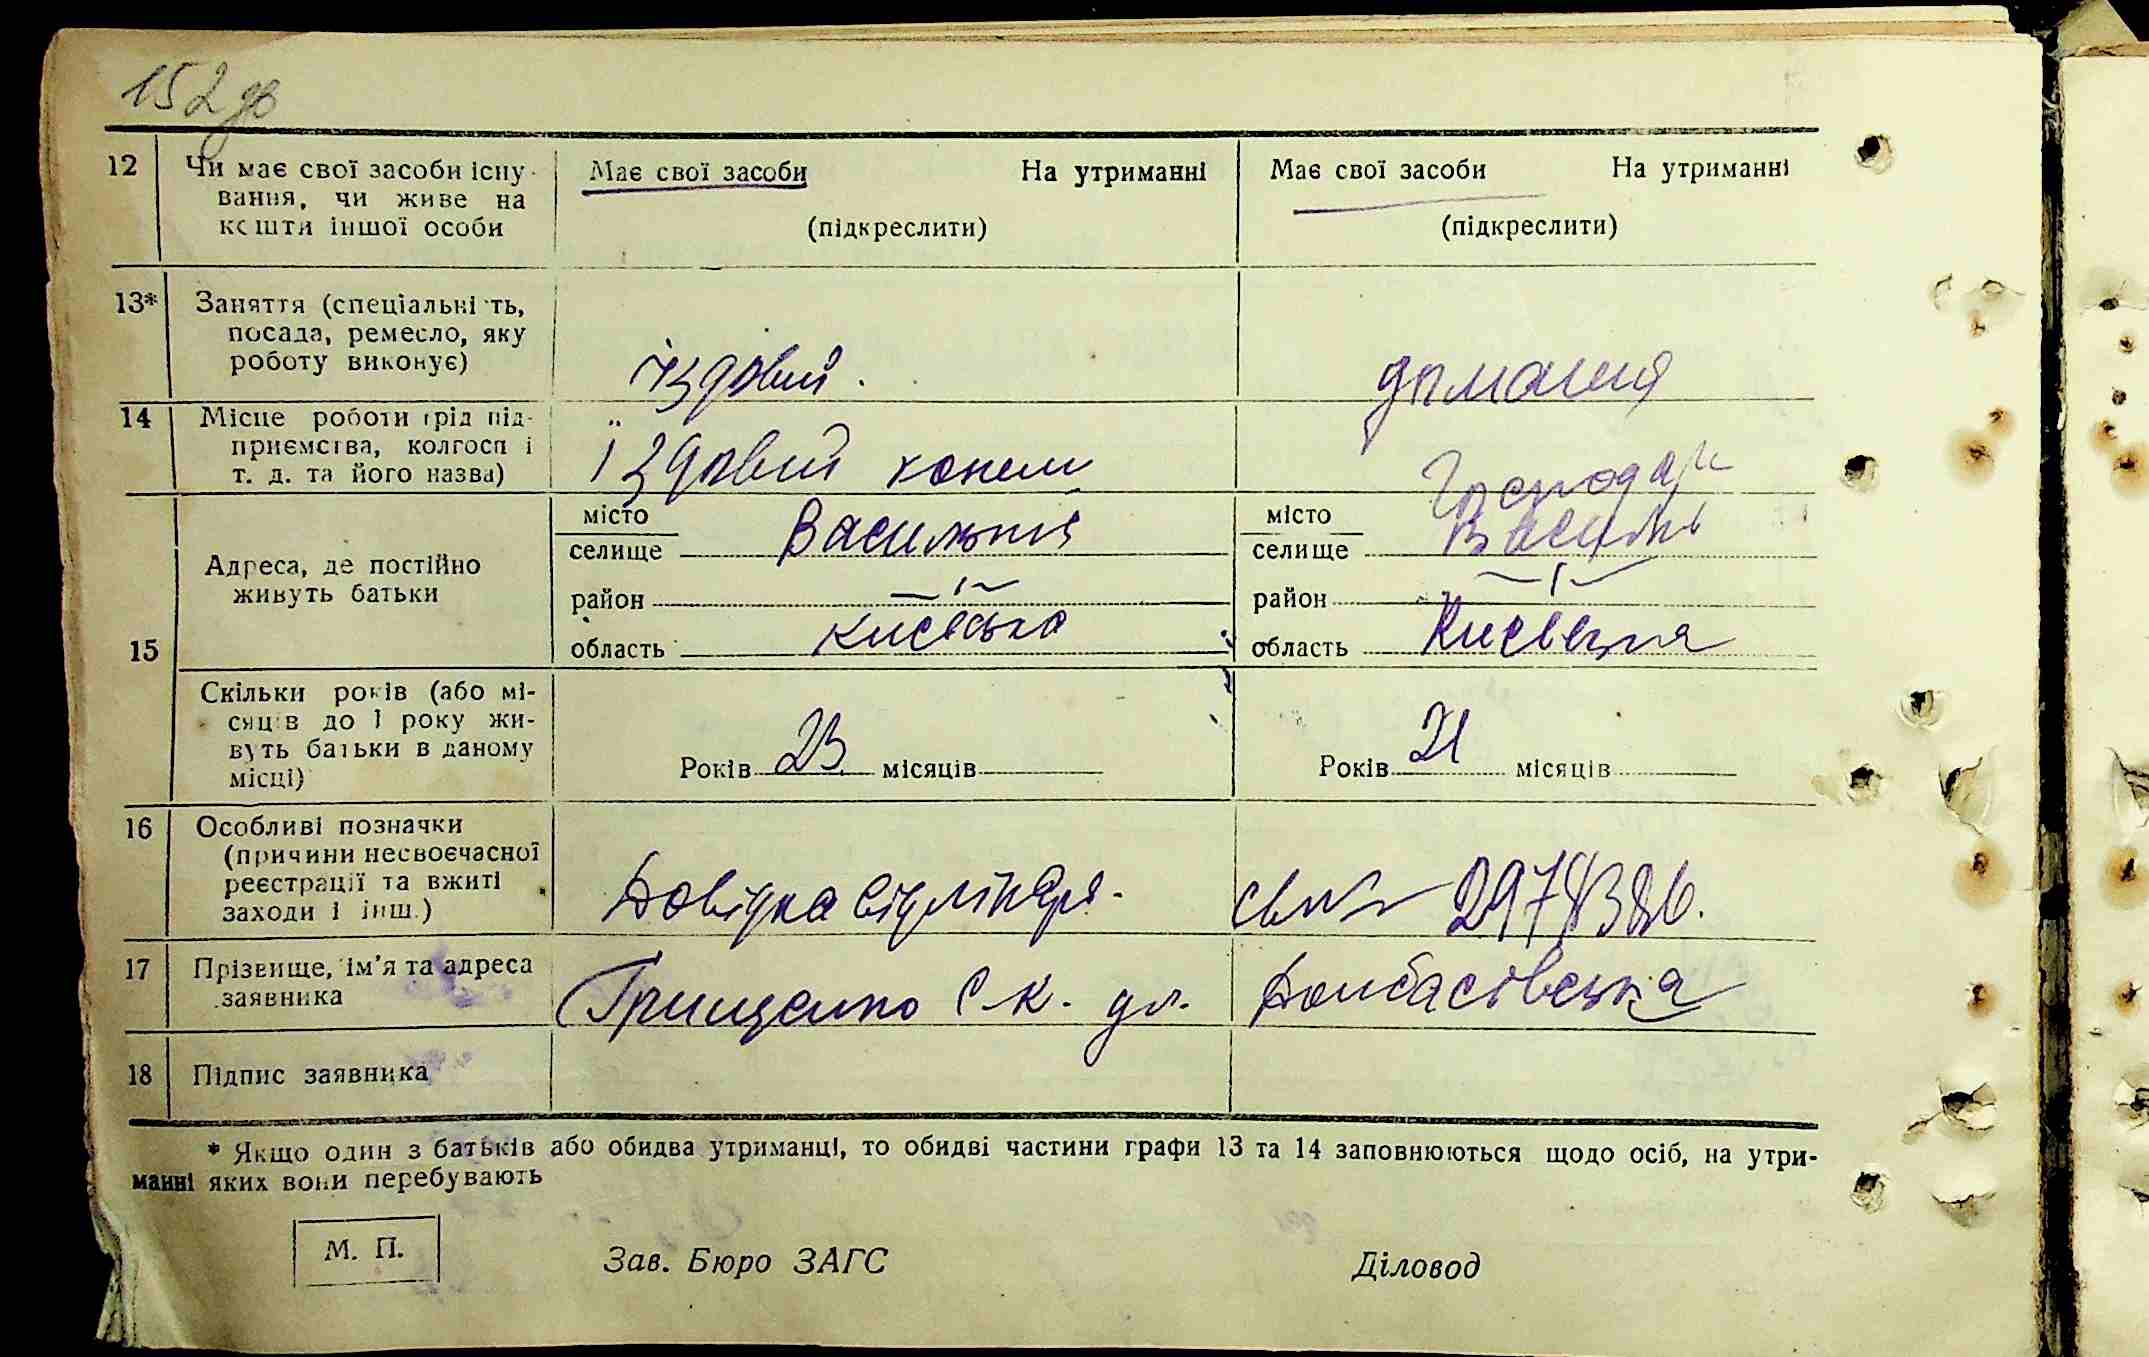 152 зв
12 Чи має свої засоби існу- Має свої засоби На утриманні Має свої засоби На утриманні
вання, чи живе на
кошти іншої особи (підкреслити) (підкреслити)
13* Заняття (спеціальні ть,
посада, ремесло, яку
роботу виконує) їздовий. домашня
14 Місце роботи (рід під-
приємства, колгосп і Їздовий конем Господарк
т. д. та його назва)
місто Васильків місто Васильк
селище селище
Адреса, де постійно
живуть батьки район —„— район —„—
15 область київська область Київська
Скільки років (або мі-
сяців до 1 року жи-
вуть батьки в даному Років 23 місяців Років 21 місяців
місці)
16 Особливі позначки
(причини несвоєчасної
реєстрації та вжиті Довідка від лікаря-
заходи і інш.)
17 Прізвище, ім'я та адреса Грищенко С К. ул. Домбасівська
заявника
18 Підпис заявника
* Якщо один з батьків або обидва утриманці, то обидві частини графи 13 та 14 заповнюються щодо осіб, на утри-
манні яких вони перебувають
М. П. Зав. Бюро ЗАГС Діловод